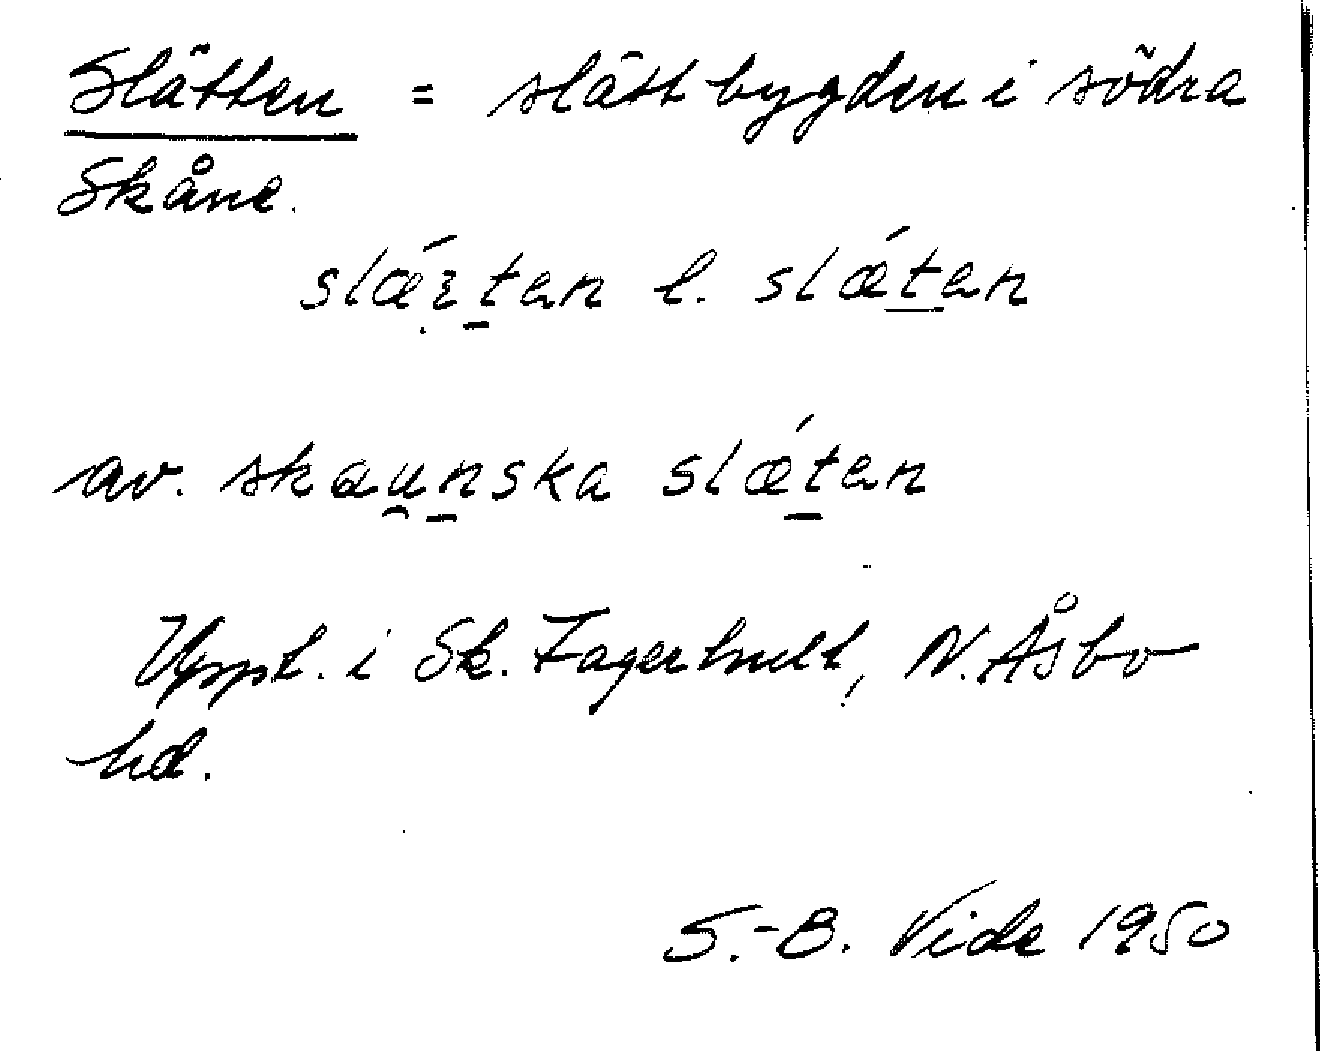 Slätten = slättbygden i södra
Skåne.
slǽɛ̣t̲an l. slǽt̲an
av. skau̯n̲ska slǽt̲an
Uppt. i Sk. Fagerhult, N. Åsbo
hd.
S.-B. Vide 1950